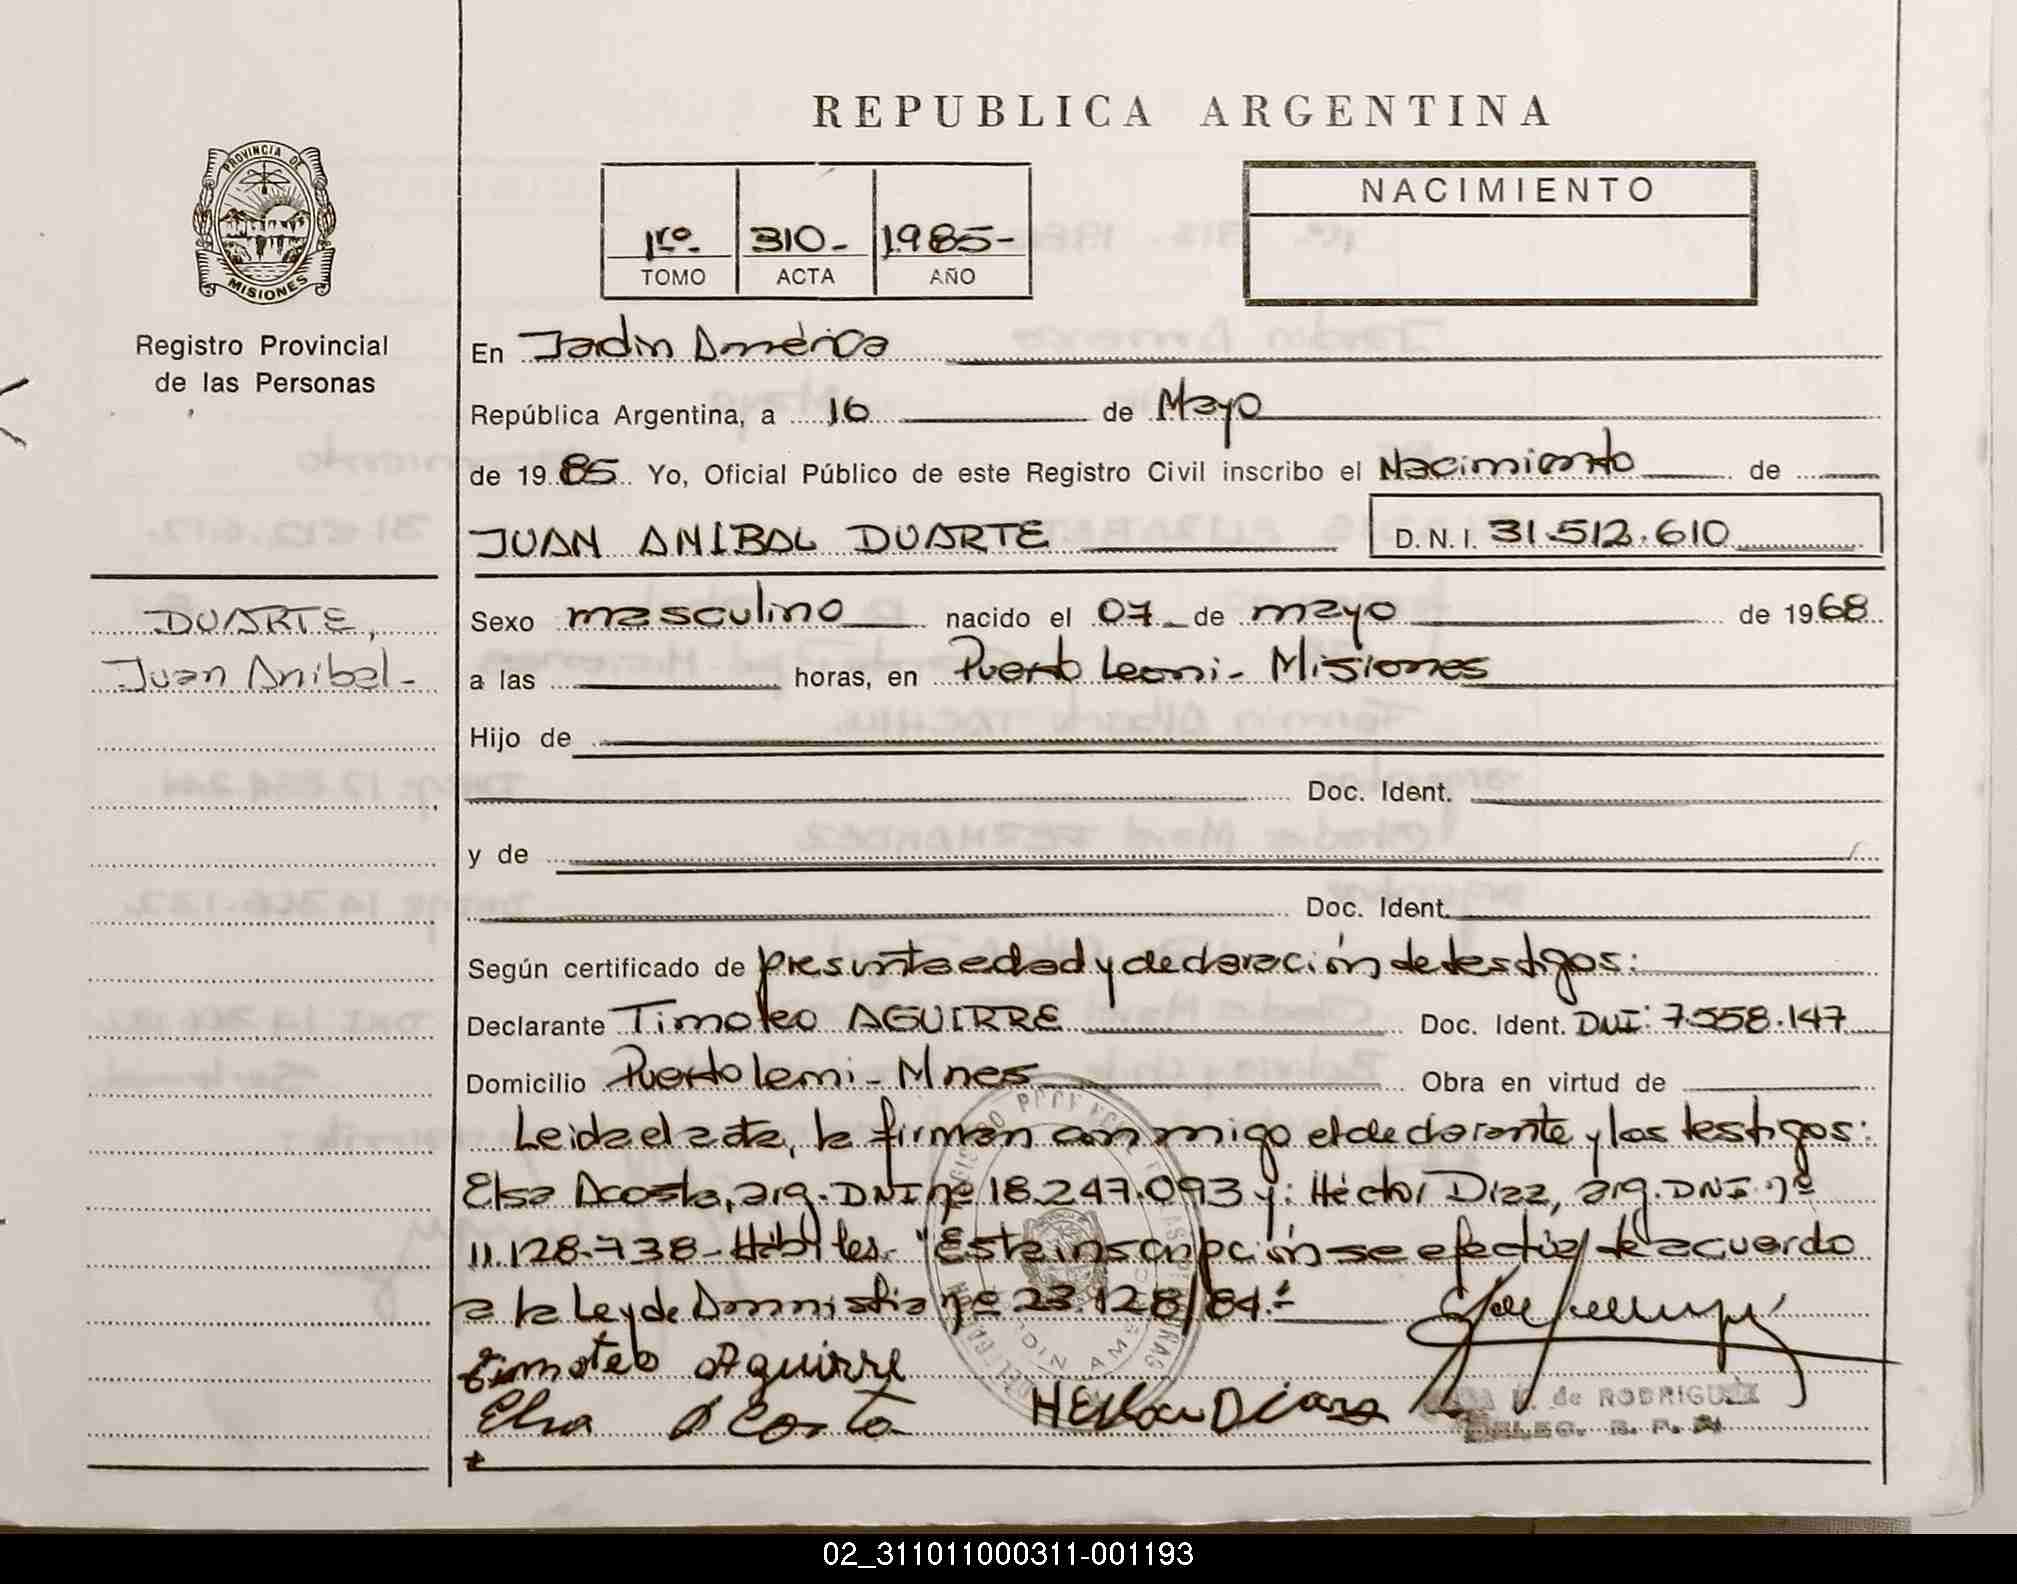 REPUBLICA ARGENTINA
PROVINCIA DE
MISIONES
Registro Provincial
de las Personas
1ro. 310- 1985-
TOMO ACTA AÑO
NACIMIENTO
En Jardin América
República Argentina, a 16 de Mayo
de 1985 Yo, Oficial Público de este Registro Civil inscribo el Nacimiento de
JUAN ANIBAL DUARTE D.N.I. 31.512.610
DUARTE,
Juan Anibal-
Sexo masculino nacido el 07 de mayo de 1968
a las horas, en Puerto Leoni- Misiones
Hijo de
Doc. Ident.
y de
Doc. Ident.
Según certificado de presunta edad y declaración de testigos:
Declarante Timoteo AGUIRRE Doc. Ident. DNI: 7.558.147
Domicilio Puerto Leoni- Mnes Obra en virtud de
Leida el acta, la firman conmigo el declarante y los testigos:
Elsa Acosta, arg. DNI nº 18.247.093 y: Héctor Diaz, arg. DNI nº
11.128.738- Hábiles. "Esta inscripción se efectúa de acuerdo
a la Ley de Amnistia nº 23.128/84.-
Timoteo Aguirre
Elsa Acosta Hector Diaz
de RODRIGUEZ
DELEG. R. P. P.
02_311011000311-001193